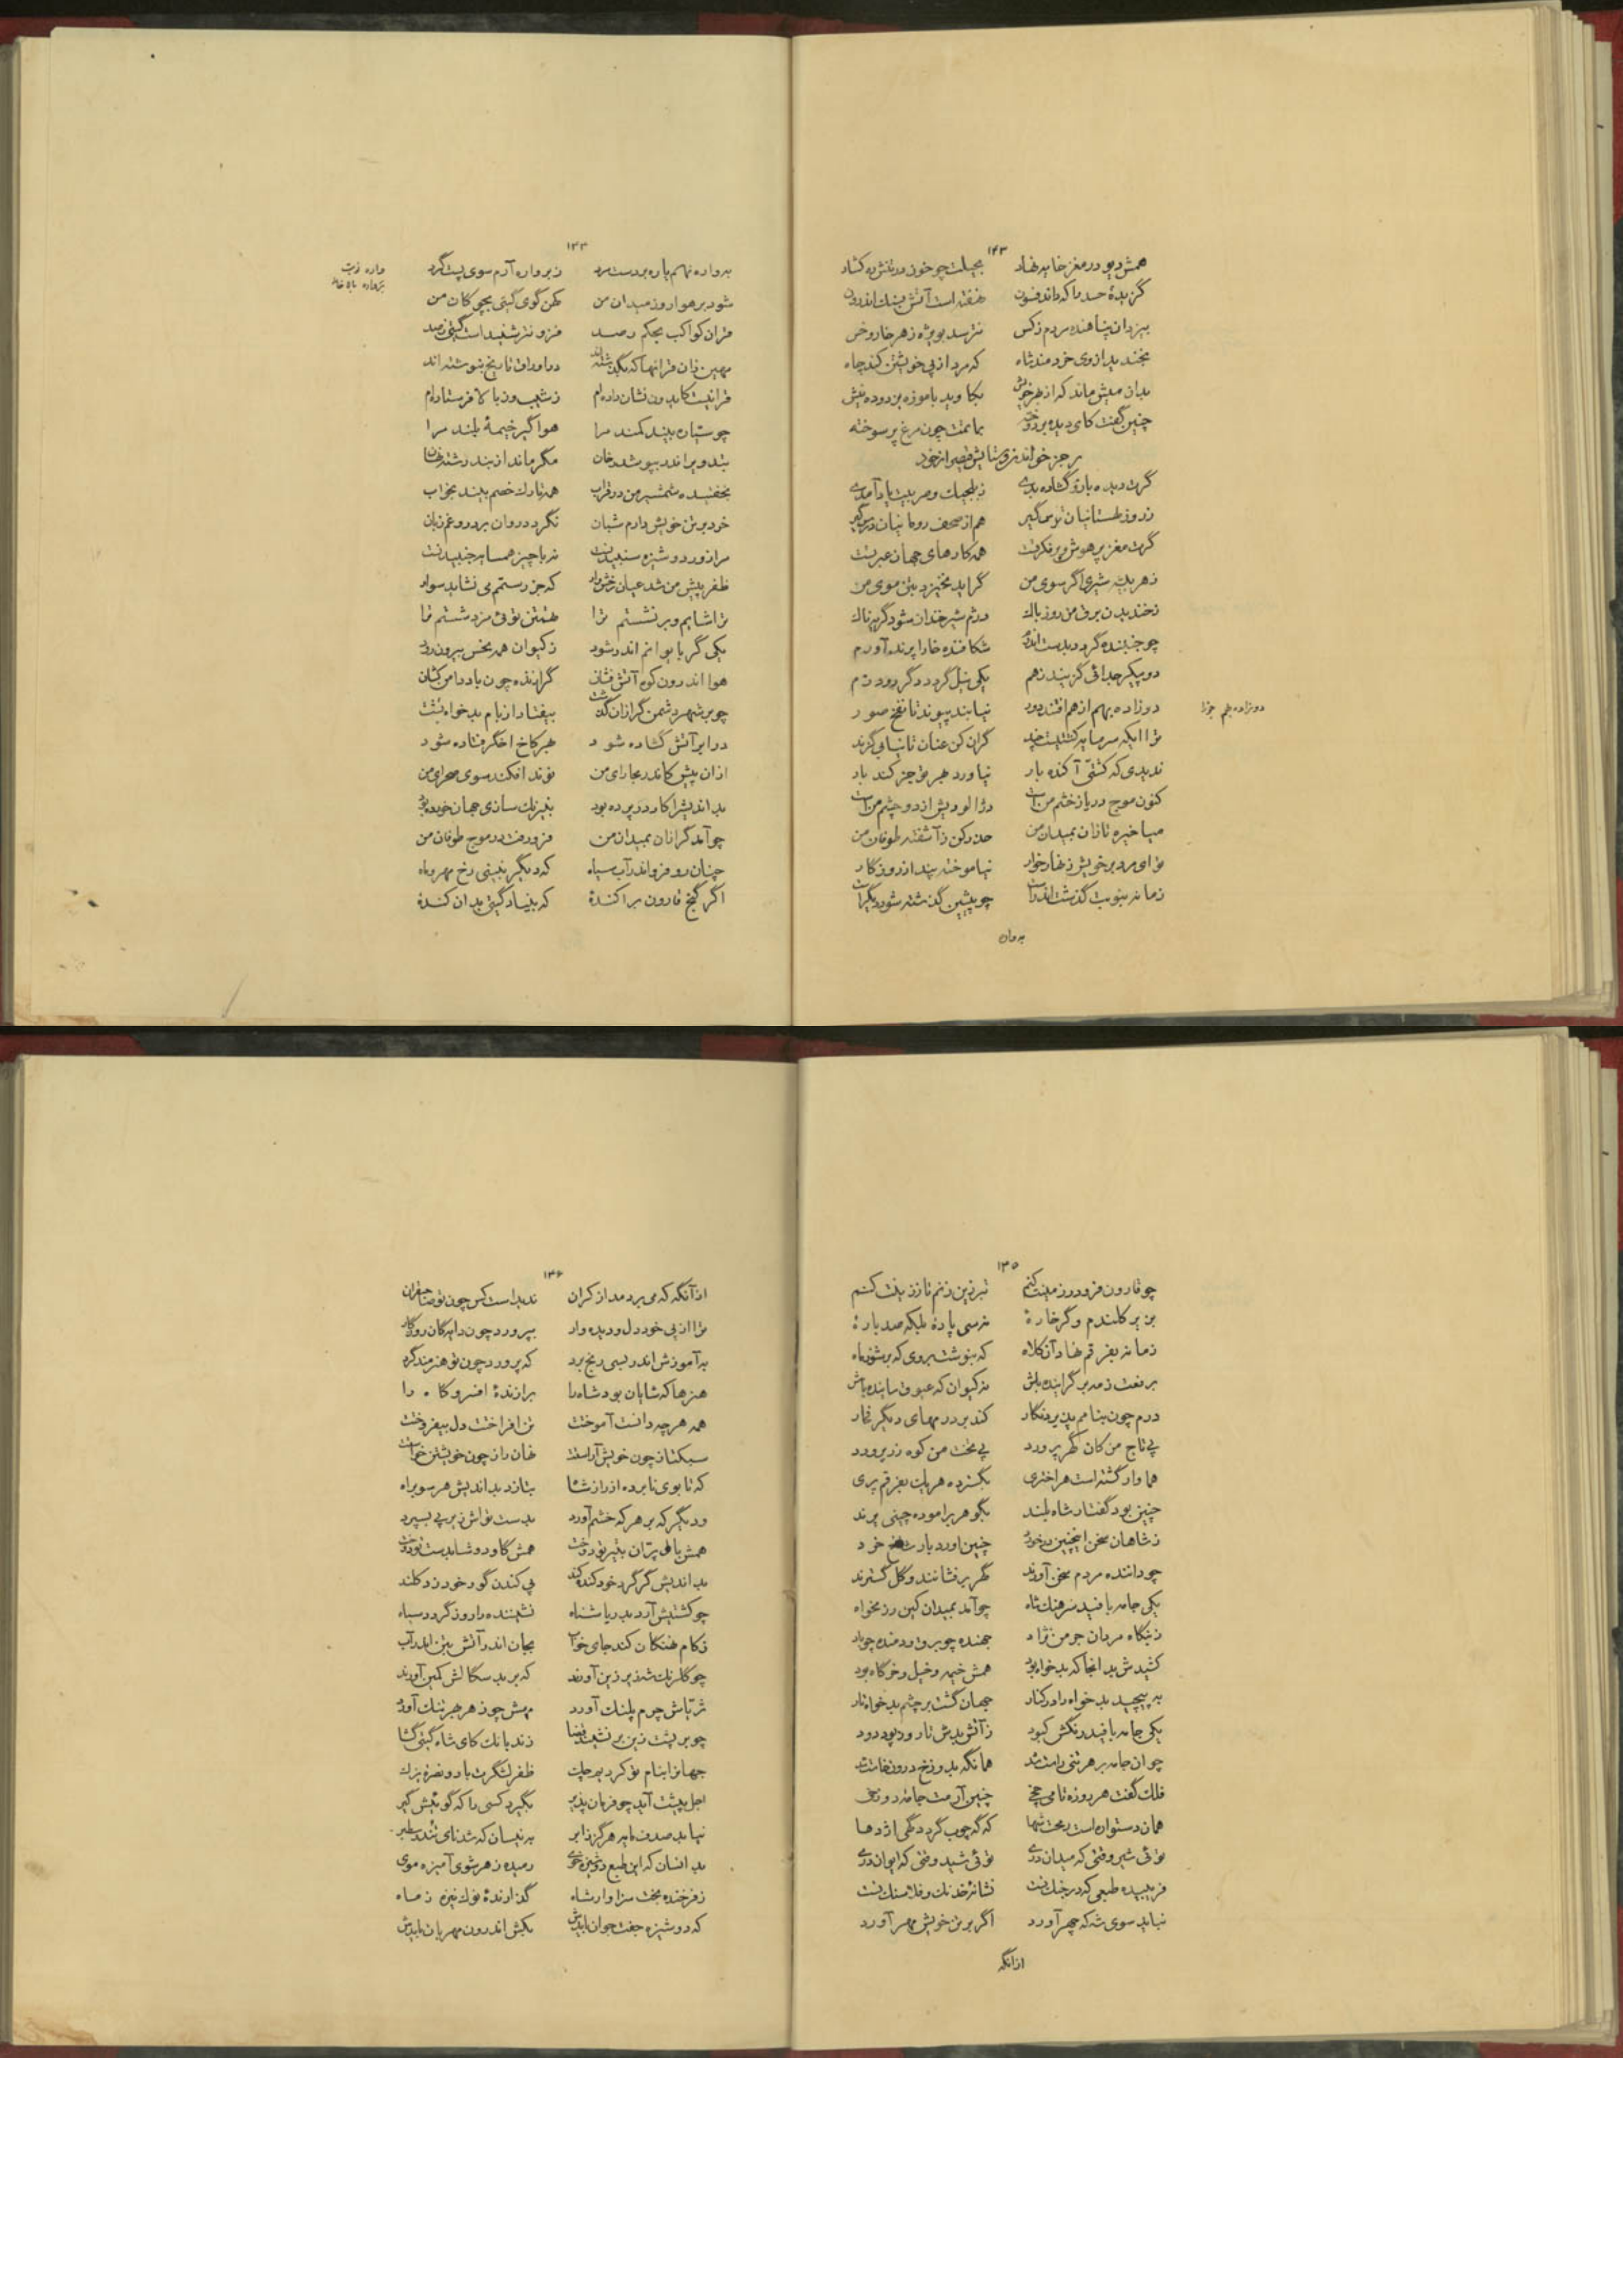 ۱۴۳
همش دیو در مغز خایه نهاد بحیلت چو خون در تنش ره گشاد
گزیدهٔ حسد را که داند فسون نهفته است آتش بسنگ اندرون
بیزدان پناهنده مردم ز کس نترسد بویژه ز هر خار و خس
بخندید از وی خردمند شاه که مرد از پی خویشتن کند چاه
بدان میش ماند که از بهر خویش بکاوید با موزه
چنین گفت کای دیده بر دوخته بماتمت چون مرغ پر سوخته
رجز خواندن و ستایش قیصر از خود
گرت دیده باز و گشاده بدی ز بلجیک و صربیت یاد آمدی
ز روز لهستانیان توس گیر هم از صحف رومانیان درس گیر
گرت مغز پر هوش و پر فکرتست همه کارهای جهان عبرتست
ز هر بیشه شیری اگر سوی من گراید نخیزد بتن موی من
نخندیدن برق من روز باک درم شیر خندان شود گریه ناک
چو جنبنده گردد بدست اندرم شکافنده خارا پرند آورم
دو پیکر جدائی گزیند ز هم یکی نیل گردد دگر رود
دو زاده بهم از هم افتند دور نیابند پیوند تا نفخ صور
دو زاده بهم جوزا
ترا ایکه سرمایه گران کن عنان تا نیابی گزند
ندیدی که کشتی آکنده بار نیاورد هر چیز کند بار
کنون موج دریا ز خشم من است دو از دو چشم من است
میا خیره تازان بمیدان من حذر کن ز آشفته طوفان من
تو ای مرد بر خویش زنهار خوار نیاموخته پند از روزگار
زمانه بنوبت گذشت اندر است چو پیشین گذشته شود دیگر است
به واره
۱۴۴
به واره نهم پاره بر دست مرد ز بر واره آرم سوی پست گرد
واره نوبت
شود بر هوا روز میدان من کهن گوی گیتی بچوگان من
قران کواکب بحکم رصد فزونتر شنیده است گیتی ز صد
مهین زان قرانها که بگذشته‌اند در اوراق تاریخ بنوشته‌اند
قرانیست کایدون نشان داده‌ام ز شیب و ز بالا فرستاده‌ام
چو ستاره بیند کمند مرا هوا گیر خیمهٔ بلند مرا
بتدویر اندر بپوشد رخان مگر ماند از بند رشته رهان
نخفتیده شمشیر من در قراب همه تارک خصم بیند بخواب
خرد بر تن خویش دارم شبان نگردد روان بر دروغم زبان
مرا زور دوشیزه سنجیدنست نه با چیز همسایه جنبیدنست
ظفر پیش من شد عیان رخش وار که جز رستم می نشاید سوار
ترا شایم و بر نشستم ترا تهمتن توئی مزد شستم ترا
یکی گر بایوانم اندر شود ز کیوان همه نحس بیرون رود
هوا اندرون کوه آتش فشان گرازنده چون باد دامن کشان
چو بر شهر دشمن گرازان گذشت بیفتاد از بام بدخواه تشت
در ابر آتش گشاده شود بهر کاخ اخگر فتاده شود
از آن پیش کاندر بخارای من نوند افکند سوی صحرای من
بد اندیش را کار در پرده بود بنیرنگ سازی جهان خورده بود
چو آمد گرازان بمیدان من فرو رفت در موج طوفان من
چنان رو فرو اندر آب سیاه که دیگر نبینی رخ مهر و ماه
اگر گنج قارون پراکندهٔ که بنیاد گیتی بدان کندهٔ
۱۴۵
چو قارون فرو در زمینت کنم تبرزین زنم تا ززینت کنم
تن پر کلندم و گر خارهٔ نه سی پارهٔ بلکه صد پارهٔ
زمانه بفرقم نهاد آن کلاه که بنوشت بروی که بر شو بماه
برفعت ز مه بر گراینده باش نه کیوان که عیوق ساینده باش
درم چون بنامم پذیرد نگار کند بر درمهای دیگر فخار
پی تاج من کان گهر پرورد پی تخت من کوه زر پرورد
هما وار گشته است هر اختری بگسترده هر یک بفرقم پری
چنین بود گفتار شاه بلند بگوهر بر آموده چینی پرند
ز شاهان سخن اینچنین در خورد چنین آورد بار شاخ خرد
چو داننده مردم سخن آورند گهر بر فشانند و گل گسترند
یکی جامه بافید سرهنگ شاه چو آمد بمیدان کین رزمخواه
ز نیگاه مردان جرمن نژاد جهنده چو برق و دمنده چو باد
کشیدش بد انجا که بدخواه بود همش خیمه و خیل و خرگاه بود
بپیچید بدخواه را در کنار جهان گشت بر چشم بدخواه تار
یکی جامه بافید رنگش کبود ز آتش بدش تار و دود پود
چو آن جامه بر هر تنی راست شد همانگه بدوزخ درون خاست شد
فلک گفت هر روزه تا می چمی چنین آرمت جامه دوزخی
همان دستواره است رمحت شها که گه چوب گردد گهی اژدها
توئی شیر وقتی که میدان دری توئی شید وقتی که ایوان دری
فریبیده طبعی که در جنگ تست نشانه خدنگ و فلاسنگ تست
نیاید سوی شه که چهر آورد اگر بر تن خویش مهر آورد
ازانگه
۱۴۶
از آنگه که می بردمد از کران ندیده است کس چون تو صاحبقران
ترا از پی خود دل و دیده وار بپرورد چون دایگان روزگار
به آموزش اندر بسی رنج برد که پرورد چون تو هنرمند گرد
هنرها که شایان بود شاه را برازندهٔ افسر و گاه را
همه هر چه دانست آموخت تن افراخت دل بیفروخت
سبکتاز چون خویش آراست نهان راز چون خویشتن خواست
که تا بوی نابرده از راز شاه بتازد بد اندیش هر سو براه
و دیگر که بر هر که خشم آورد بدست تو اش زیر پی بسپرد
همش بال پران بتیر تو دوخت همش گاو دوشا بدست تو دوخت
بد اندیش گر گرد خود کنده کند پی کندن گور خود زد کلند
چو کشتیش آرد بدریا شناه نشیننده را روز گردد سیاه
ز کام نهنگان کند جای خواب بجان اندر آتش بتن اندر آب
چو گلرنگ شه زیر زین آورند که بر بد سگالش کمین آورند
ثریاش چرم پلنگ آورد مهش چو ز هر جبر تنگ آورد
چو بر پشت زین بر نشیند قضا زند بانگ کای شاه گیتی گشا
جهان را بنام تو کردیم چک ظفر لشگرت باد و نصرة یزک
اجل پیشت آید چو فرمان پذیر بگیرد کسی را که گوئیش گیر
نیابد صدف مایه هرگز ز ابر به نیسان که شد نای تندر سطبر
بد انسان که این طبع دوشیزه خوی رمیده ز هر شوی آمیزه موی
ز فرخنده بخت سزاوار شاه گذارندهٔ نوک نیزه ز ماه
که دوشیزه جفت جوان بایدش بکش اندرون مهربان بایدش